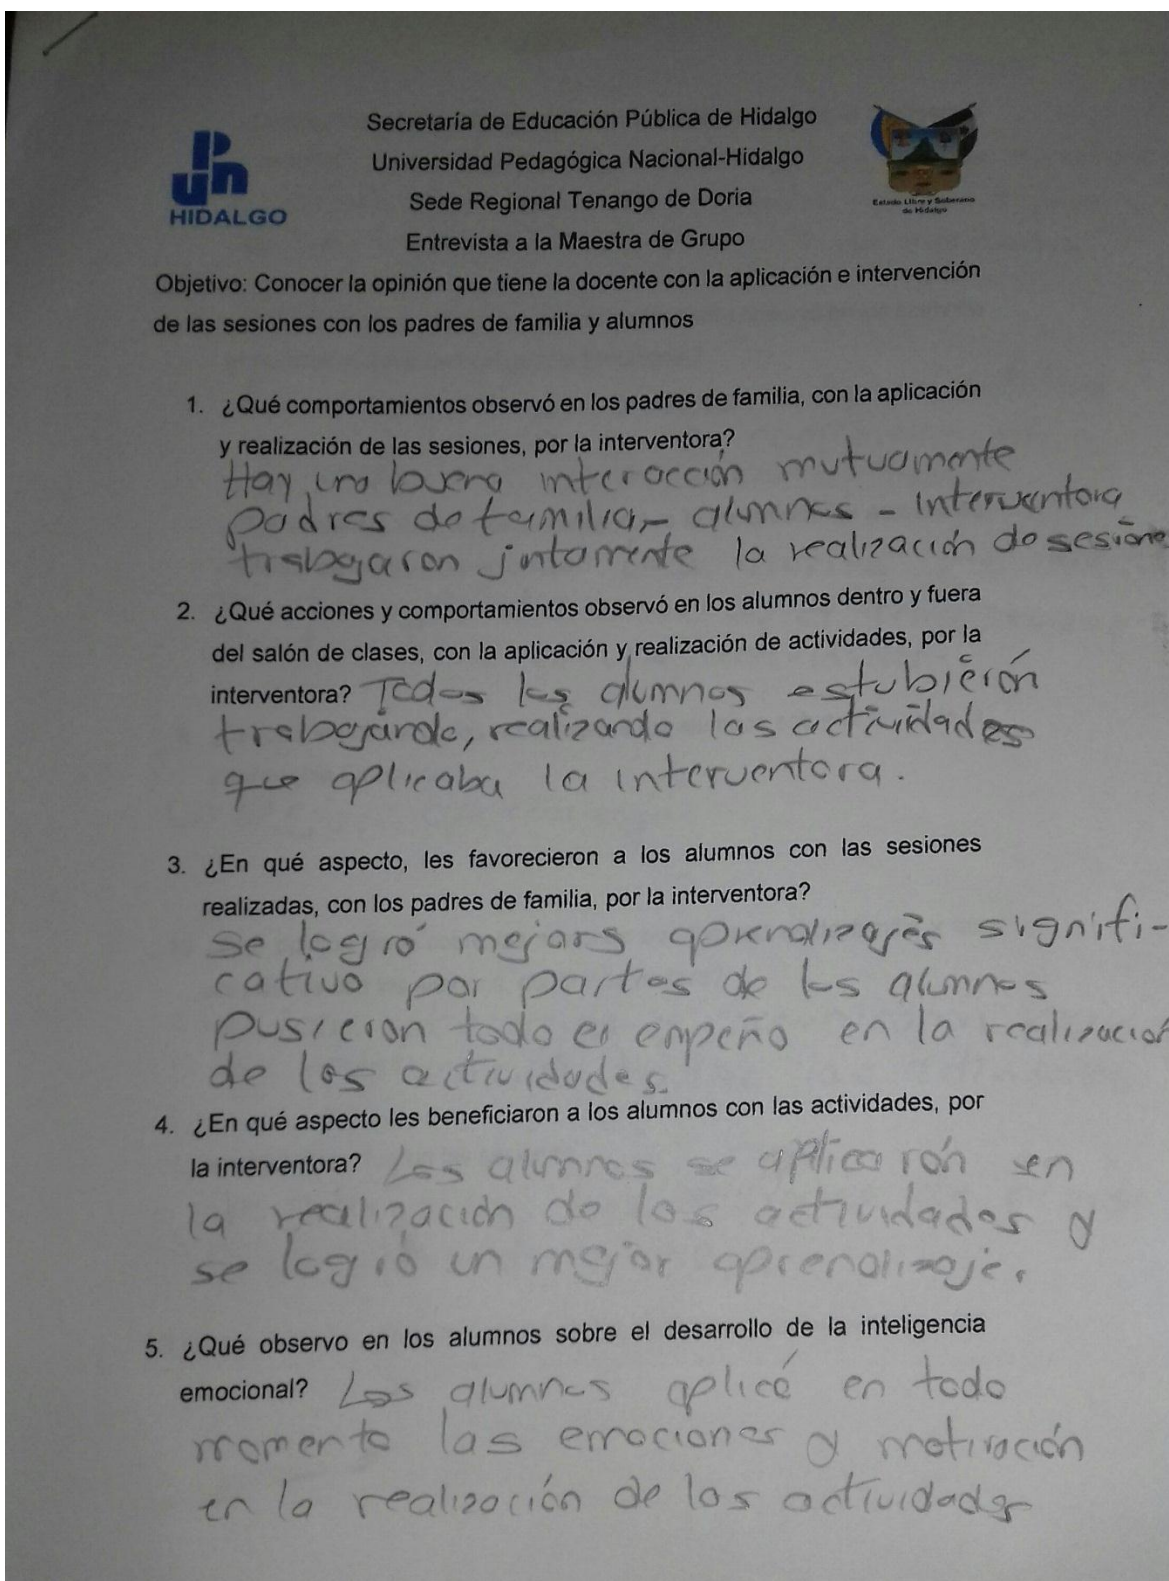 Secretaría de Educación Pública de Hidalgo
Universidad Pedagógica Nacional-Hidalgo
Sede Regional Tenango de Doria
Entrevista a la Maestra de Grupo
UPN
HIDALGO
Estado Libre y Soberano
de Hidalgo
Objetivo: Conocer la opinión que tiene la docente con la aplicación e intervención
de las sesiones con los padres de familia y alumnos
1. ¿Qué comportamientos observó en los padres de familia, con la aplicación
y realización de las sesiones, por la interventora?
Hay una buena interacción mutuamente
padres de familia,- alumnos - Interventora
trabajaron jintamente la realización de sesione
2. ¿Qué acciones y comportamientos observó en los alumnos dentro y fuera
del salón de clases, con la aplicación y realización de actividades, por la
interventora? Todos los alumnos estubierón
trabajando, realizando las actividades
que aplicaba la interventora.
3. ¿En qué aspecto, les favorecieron a los alumnos con las sesiones
realizadas, con los padres de familia, por la interventora?
Se logró mejors aprendizajes signifi-
cativo por partes de los alumnos
pusieron todo el empeño en la realización
de las actividades.
4. ¿En qué aspecto les beneficiaron a los alumnos con las actividades, por
la interventora? Los alumnos se aplicarón en
la realización de las actividades y
se logró un mejor aprendizaje.
5. ¿Qué observo en los alumnos sobre el desarrollo de la inteligencia
emocional? Los alumnos aplicó en todo
momento las emociones y motivación
en la realización de las actividades